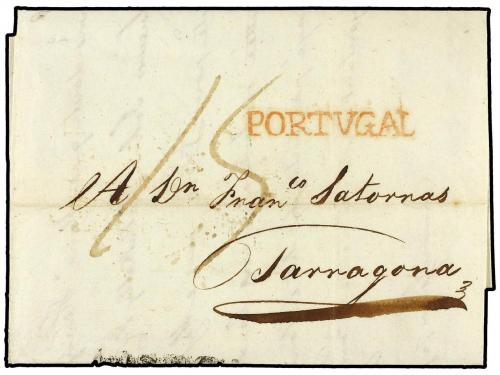 PORTVGAL
15
A Dn Fran.co Satornas
Tarragona